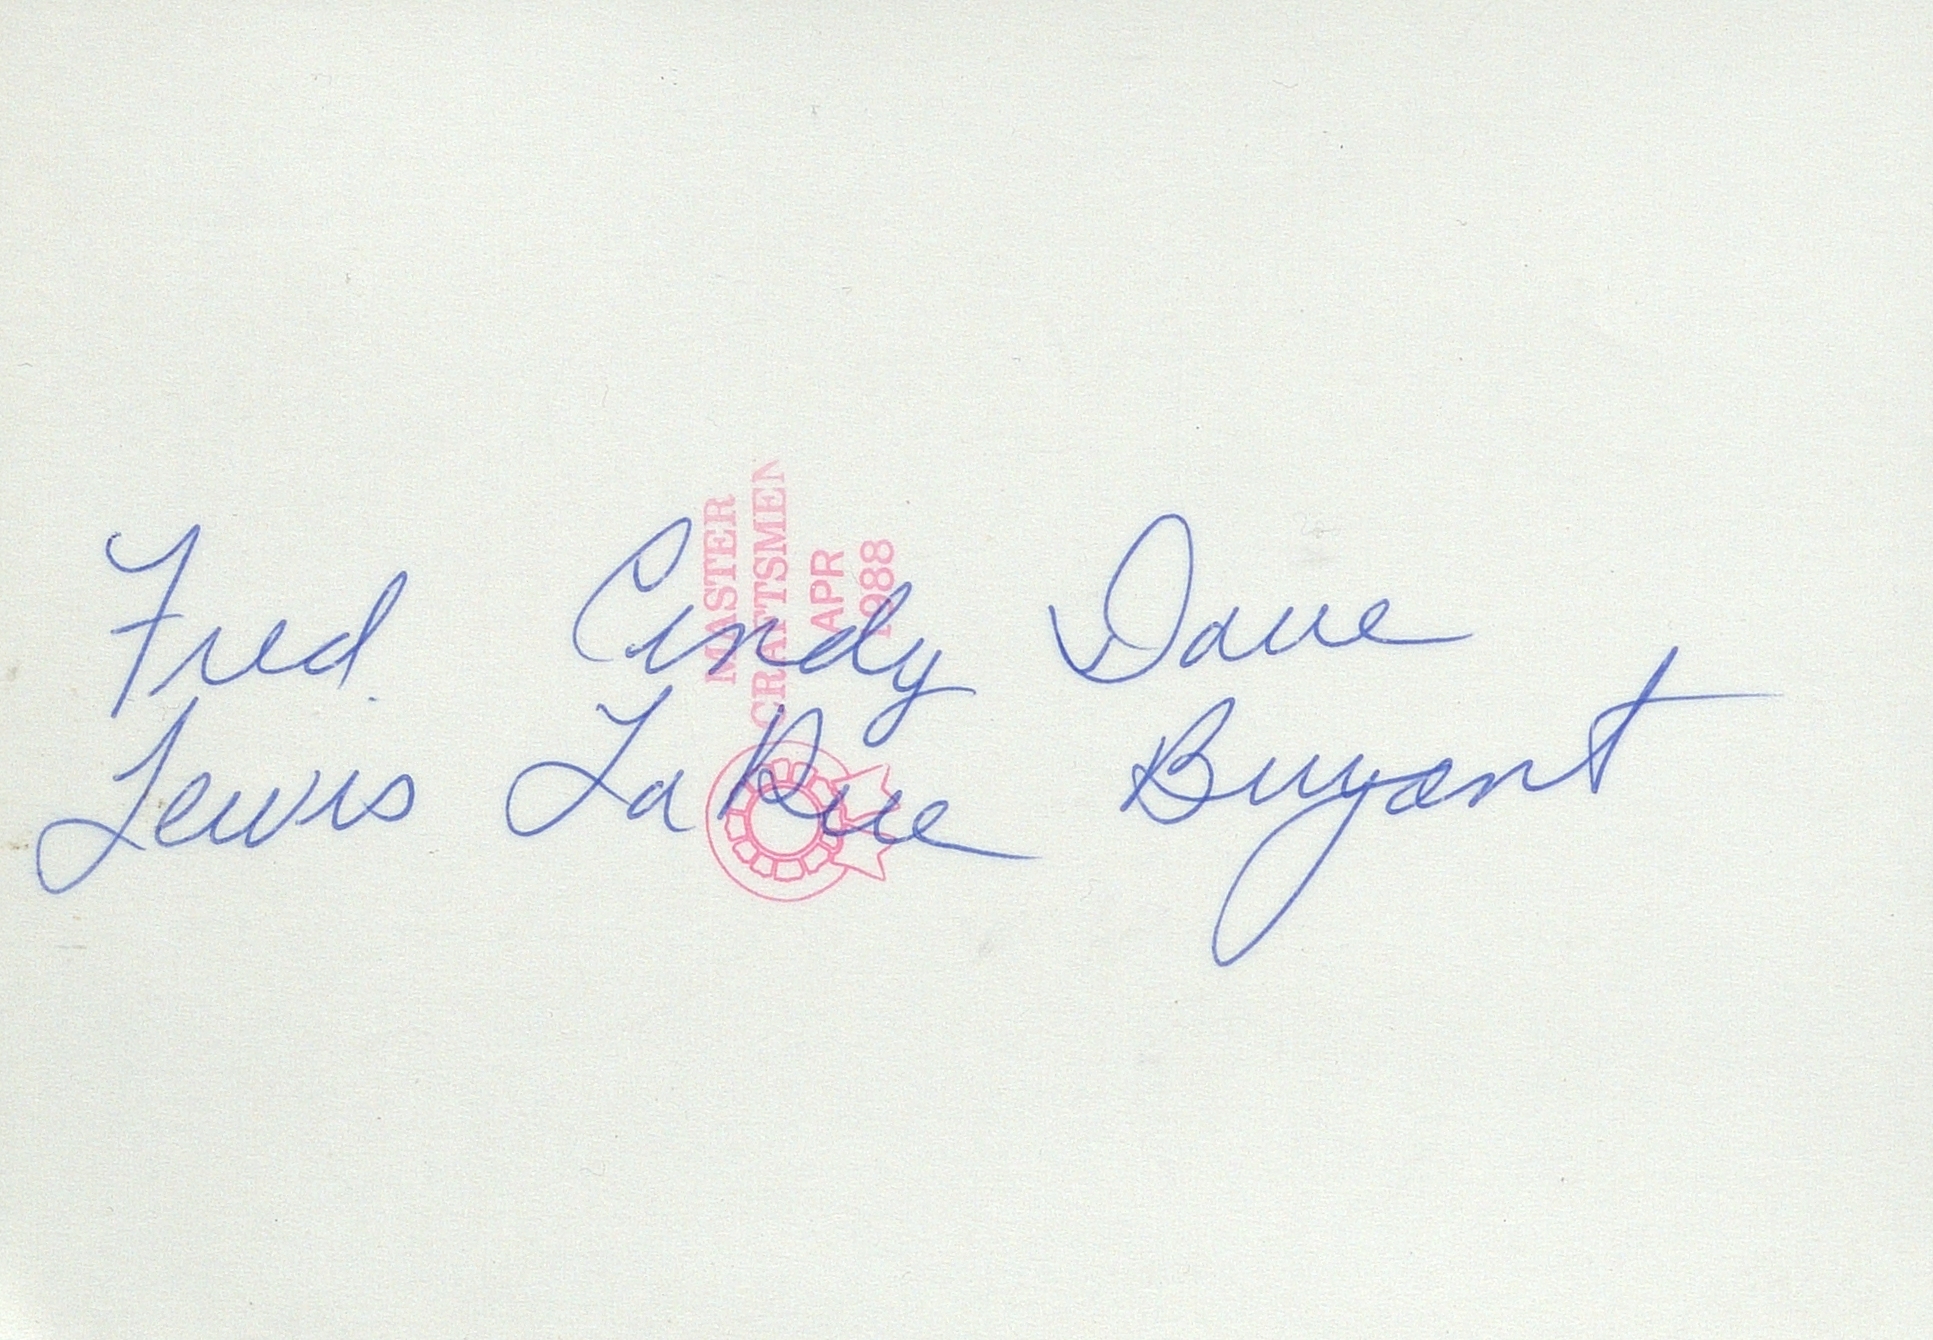 Fred Cindy Dave
Lewis LaRue Bryant
MASTER
CRAFTSMEN
APR
1988